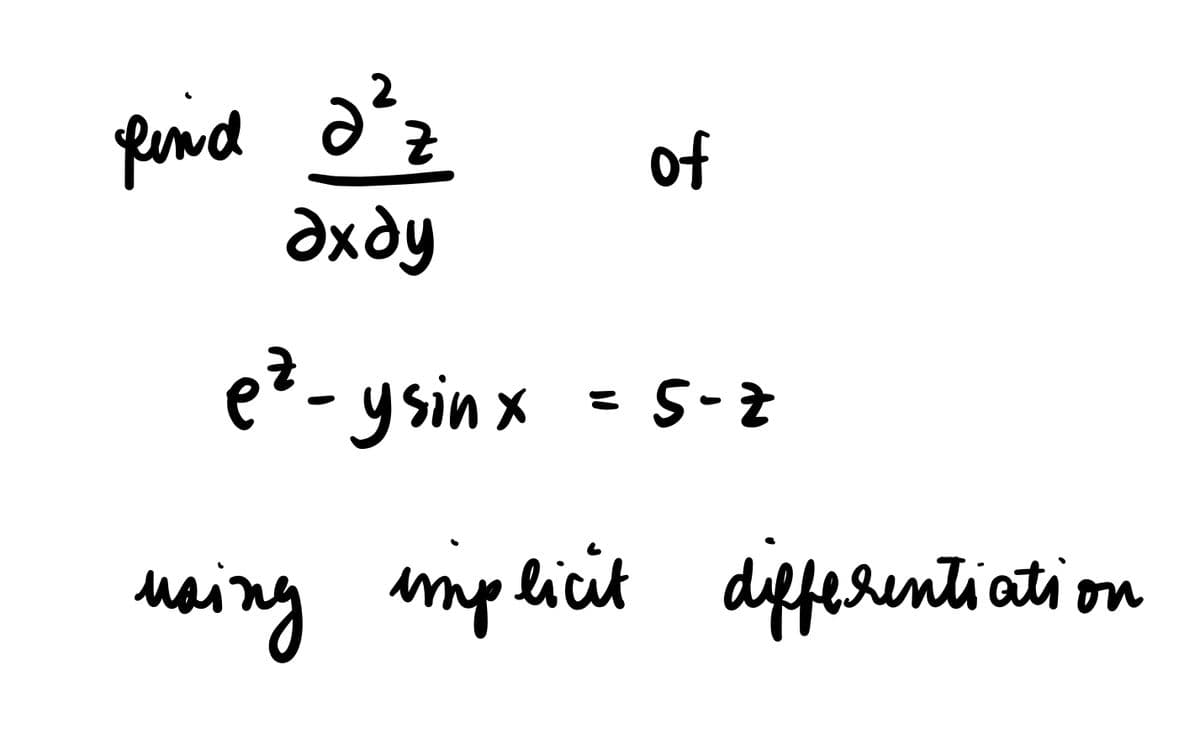 find ∂²z / ∂x∂y of
e^z - y sin x = 5 - z
using implicit differentiation